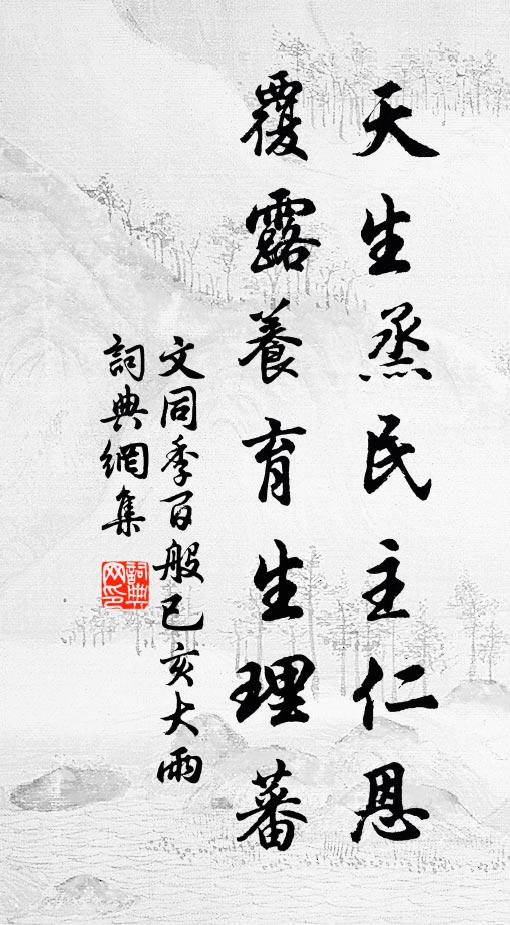 天生烝民主仁恩
覆露養育生理蕃
文同季百般已亥大雨
詞典網集
詞典
网印